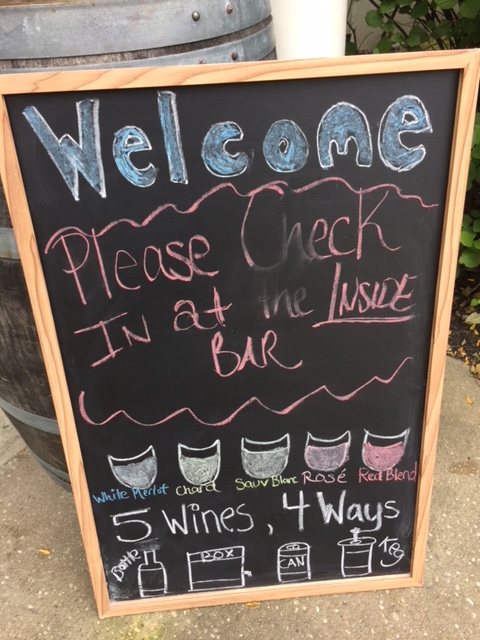 Welcome
Please Check
IN at the INSIDE
BAR
White Merlot Chard Sauv Blanc Rosé Red Blend
5 Wines, 4 Ways
Bottle BOX CAN Keg